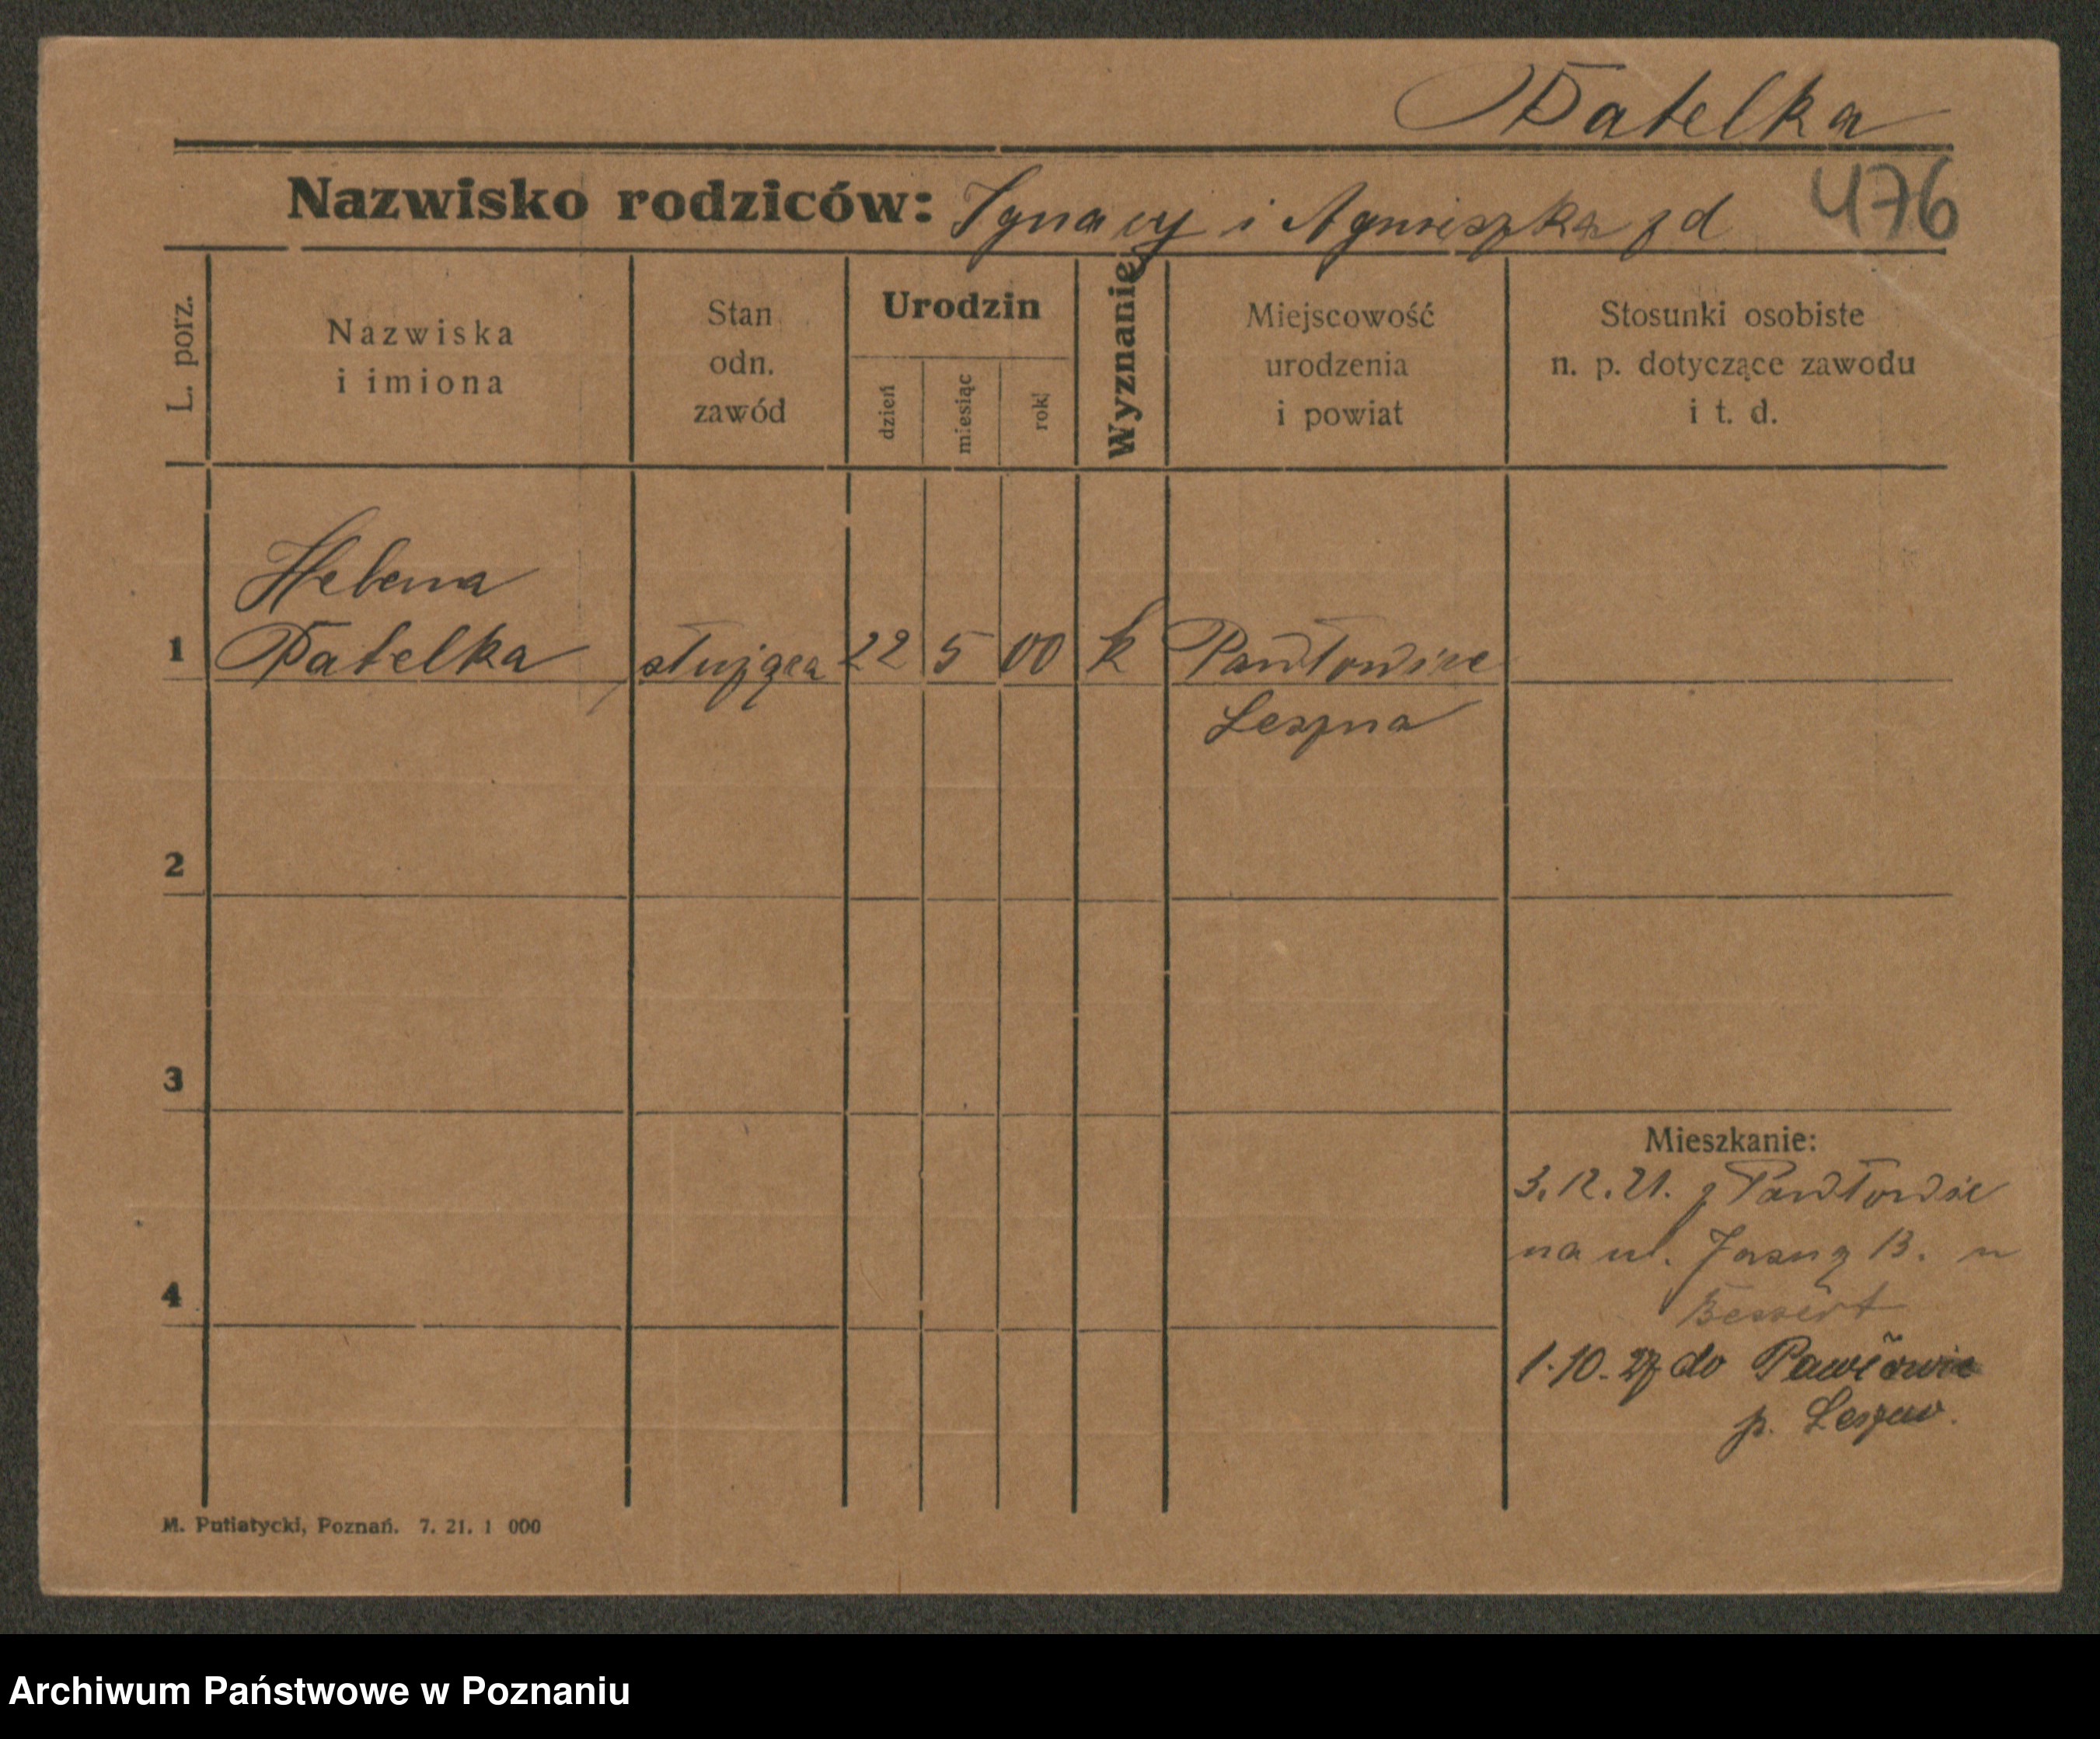 Patelka
Nazwisko rodziców: Ignacy i Agnieszka z d
476
L. porz.
Nazwiska
i imiona
Stan
odn.
zawód
Urodzin
dzień
miesiąc
rok
Wyznanie
Miejscowość
urodzenia
i powiat
Stosunki osobiste
n. p. dotyczące zawodu
i t. d.
Helena
1 Patelka służąca 22 5 00 k Pawłowice
Leszna
2
3
Mieszkanie:
3.12.21. z Pawłowic
na ul. Jasną 13. u
4
1.10. do Pawłowic
p. Leszno.
M. Putiatycki, Poznań. 7. 21. 1 000
Archiwum Państwowe w Poznaniu